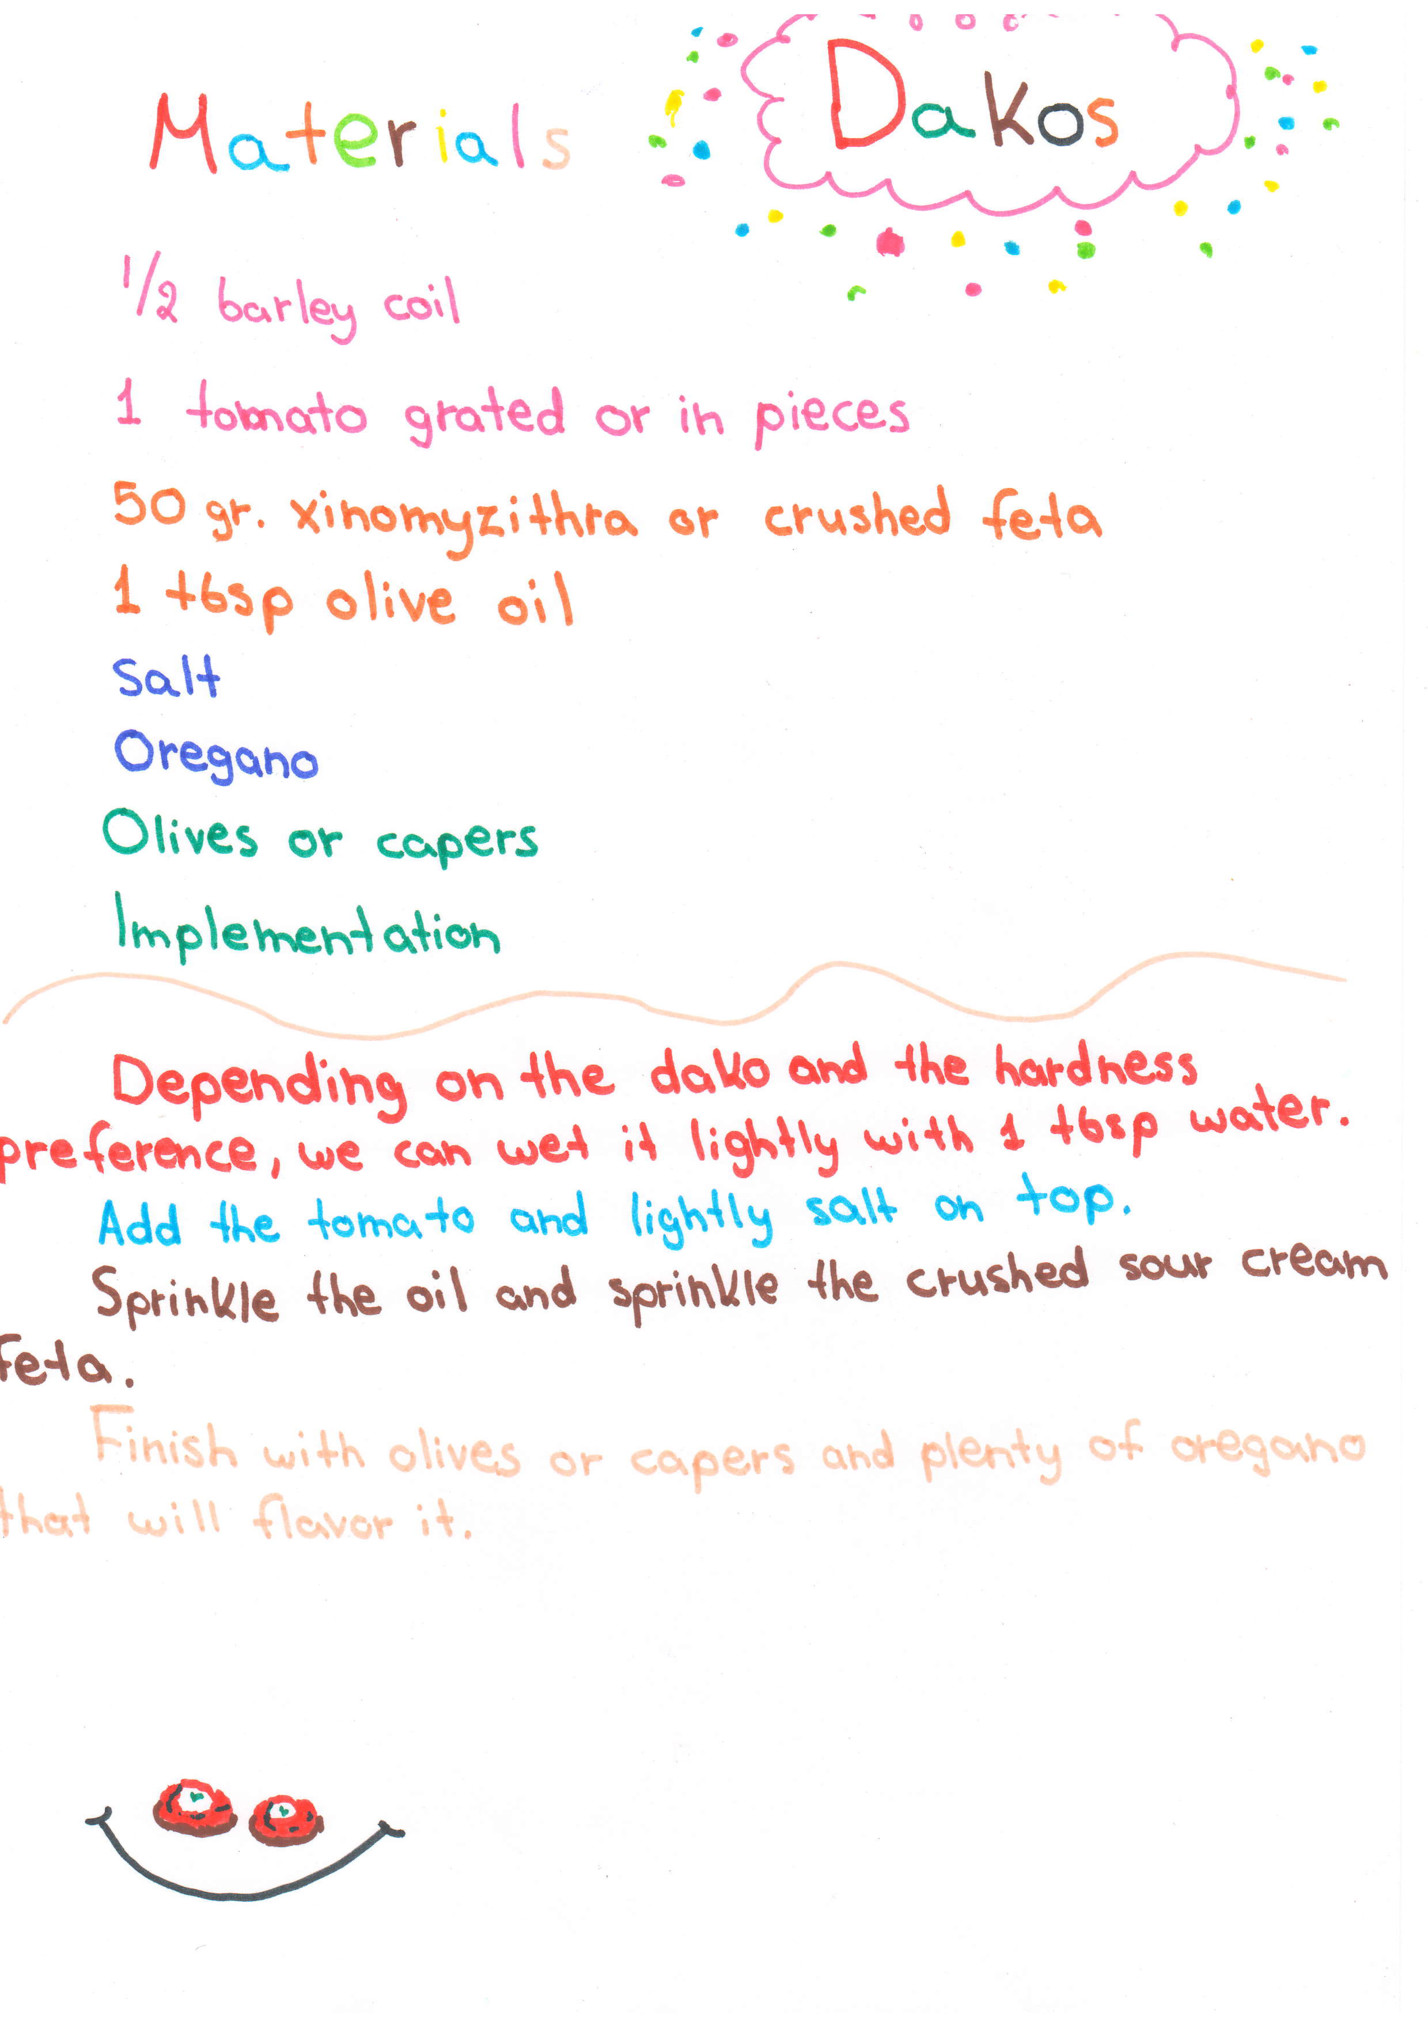 Materials
Dakos
1/2 barley coil
1 tomato grated or in pieces
50 gr. xinomyzithra or crushed feta
1 tbsp olive oil
Salt
Oregano
Olives or capers
Implementation
Depending on the dako and the hardness
preference, we can wet it lightly with 1 tbsp water.
Add the tomato and lightly salt on top.
Sprinkle the oil and sprinkle the crushed sour cream
feta.
Finish with olives or capers and plenty of oregano
that will flavor it.